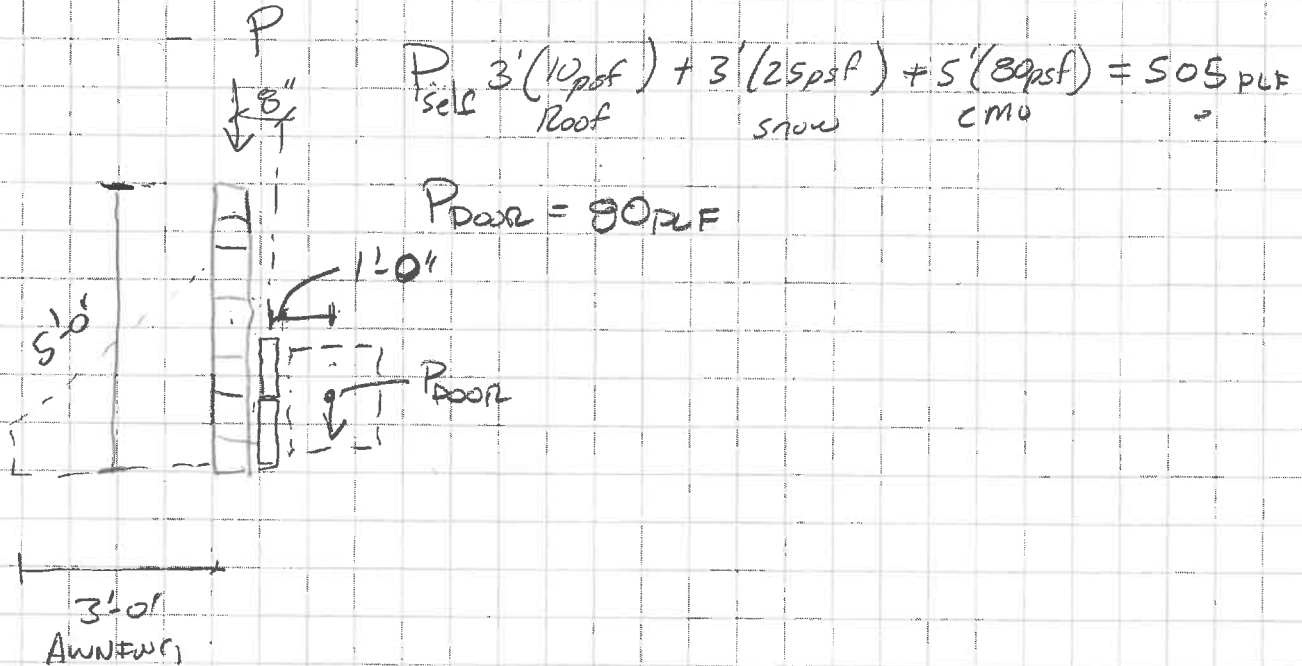 P
8"
P self 3'(10psf) + 3'(25psf) + 5'(80psf) = 505 PLF
Roof snow CMU
P DOOR = 80 PLF
1'-0"
5'-0"
P DOOR
3'-0"
AWNING